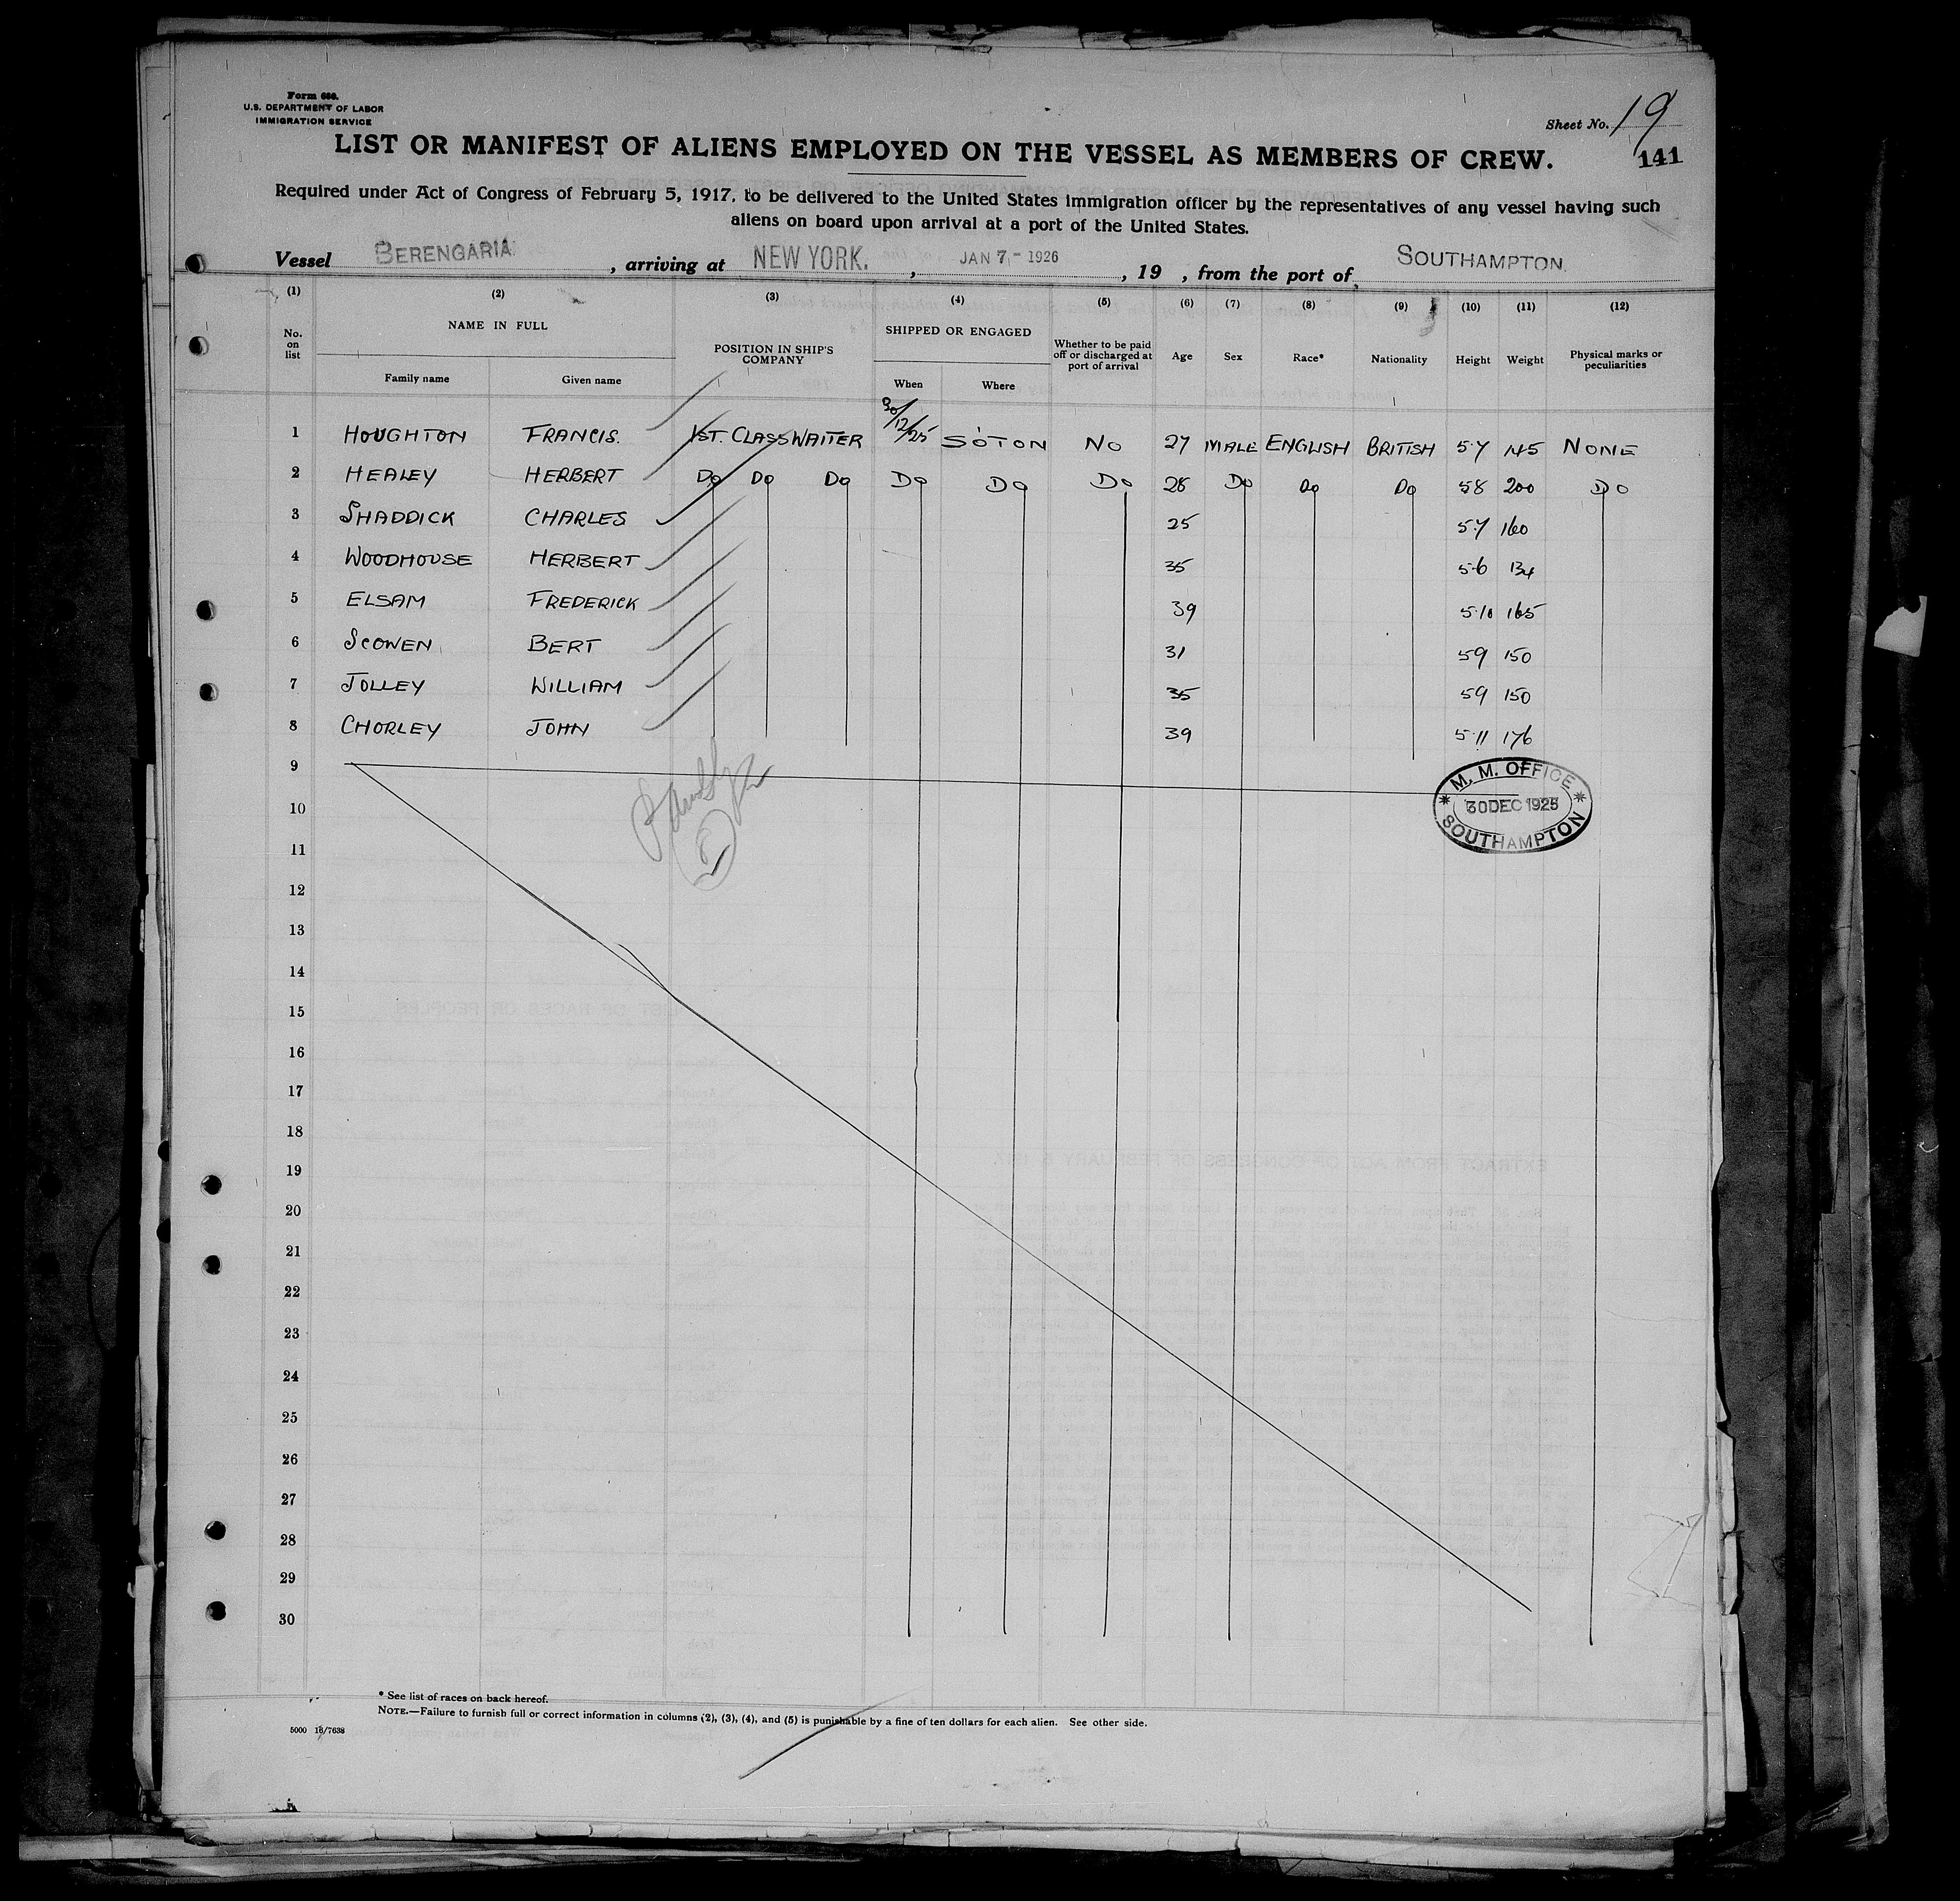 Form 686.
U.S. DEPARTMENT OF LABOR
IMMIGRATION SERVICE
Sheet No. 19
LIST OR MANIFEST OF ALIENS EMPLOYED ON THE VESSEL AS MEMBERS OF CREW.
141
Required under Act of Congress of February 5, 1917, to be delivered to the United States immigration officer by the representatives of any vessel having such
aliens on board upon arrival at a port of the United States.
Vessel BERENGARIA, arriving at NEW YORK., JAN 7 - 1926, 19 , from the port of SOUTHAMPTON.
(1) (2) (3) (4) (5) (6) (7) (8) (9) (10) (11) (12)
No. on list NAME IN FULL Family name Given name POSITION IN SHIP'S COMPANY SHIPPED OR ENGAGED When Where Whether to be paid off or discharged at port of arrival Age Sex Race* Nationality Height Weight Physical marks or peculiarities
1 HOUGHTON FRANCIS. 1ST. CLASS WAITER 30/12/25 S'OTON NO 27 MALE ENGLISH BRITISH 5·7 145 NONE
2 HEALEY HERBERT Do Do Do Do Do Do 28 Do Do Do 58 200 Do
3 SHADDICK CHARLES 25 5·7 160
4 WOODHOUSE HERBERT 35 5·6 134
5 ELSAM FREDERICK 39 5·10 165
6 SCOWEN BERT 31 59 150
7 JOLLEY WILLIAM 35 59 150
8 CHORLEY JOHN 39 5·11 176
9
M. M. OFFICE
30 DEC 1925
SOUTHAMPTON
10
11
12
13
14
15
16
17
18
19
20
21
22
23
24
25
26
27
28
29
30
* See list of races on back hereof.
NOTE.—Failure to furnish full or correct information in columns (2), (3), (4), and (5) is punishable by a fine of ten dollars for each alien. See other side.
5000 18/7638